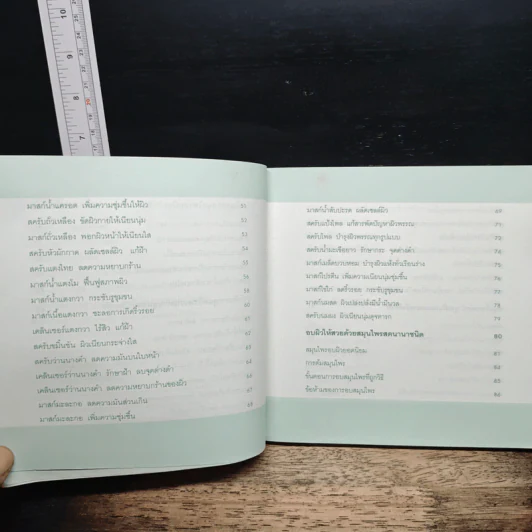 10
9
8
7
มาสก์น้ำแครอต เพิ่มความชุ่มชื้นให้ผิว 51
สครับถั่วเหลือง ขัดผิวกายให้เนียนนุ่ม 52
มาสก์ถั่วเหลือง พอกผิวหน้าให้เนียนใส 53
สครับหัวผักกาด ผลัดเซลล์ผิว แก้ฝ้า 54
สครับแตงไทย ลดความหยาบกร้าน
มาสก์น้ำแตงโม ฟื้นฟูสภาพผิว
มาสก์น้ำแตงกวา กระชับรูขุมขน
มาสก์เนื้อแตงกวา ชะลอการเกิดริ้วรอย
เคลินเซอร์แตงกวา ไร้สิว แก้ฝ้า
สครับขมิ้นชัน ผิวเนียนกระจ่างใส
สครับว่านนางคำ ลดความมันบนใบหน้า
เคลินเซอร์ว่านนางคำ รักษาฝ้า ลบจุดด่างดำ
เคลินเซอร์ว่านนางคำ ลดความหยาบกร้านของผิว
มาสก์มะละกอ ลดความมันส่วนเกิน
มาสก์มะละกอ เพิ่มความชุ่มชื้น
มาสก์น้ำสับปะรด ผลัดเซลล์ผิว 69
สครับไพล บำรุงผิวพรรณทุกรูปแบบ
สครับน้ำมะเขือยาว รักษากระ จุดด่างดำ
มาสก์โปรตีน เพิ่มความเนียนนุ่มชุ่มชื้น 76
มาสก์ไข่ไก่ ลดริ้วรอย กระชับรูขุมขน
มาสก์นมสด ผิวเปล่งปลั่งมีน้ำมีนวล
สครับนมผง ผิวเนียนนุ่มดุจทารก
อบผิวให้สวยด้วยสมุนไพรสดนานาชนิด 80
สมุนไพรอบผิวยอดนิยม
การต้มสมุนไพร
ขั้นตอนการอบสมุนไพรที่ถูกวิธี 85
ข้อห้ามของการอบสมุนไพร 86